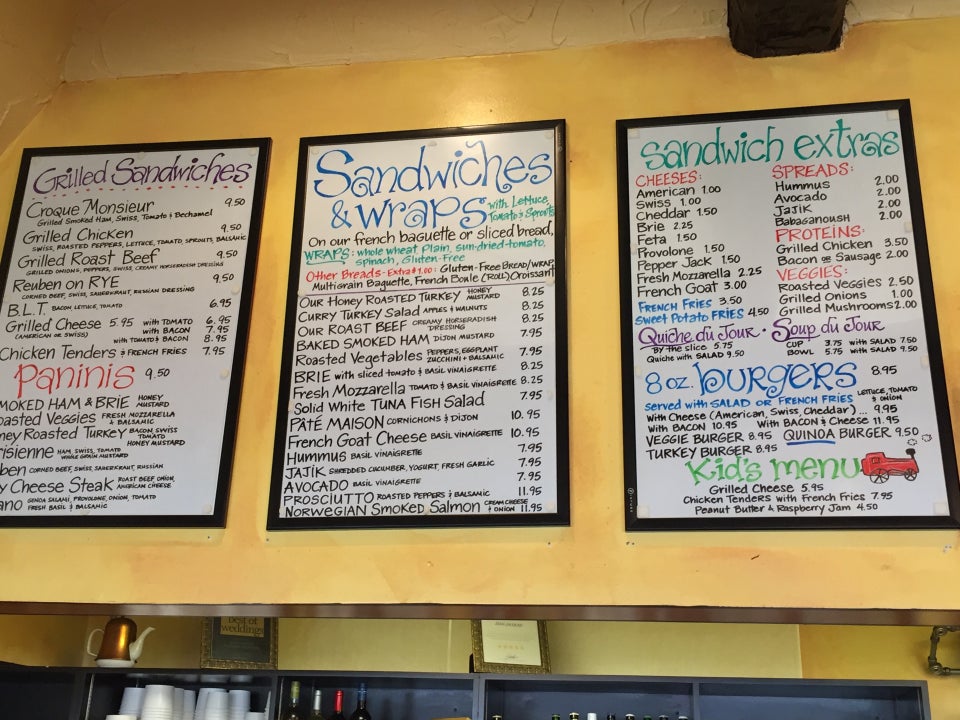 Grilled Sandwiches
Croque Monsieur 9.50
Grilled Smoked Ham, Swiss, Tomato & Bechamel
Grilled Chicken 9.50
Swiss, Roasted Peppers, Lettuce, Tomato, Sprouts, Balsamic
Grilled Roast Beef 9.50
Grilled Onions, Peppers, Swiss, Creamy Horseradish Dressing
Reuben on RYE 9.50
Corned Beef, Swiss, Sauerkraut, Russian Dressing
B.L.T. Bacon, Lettuce, Tomato 6.95
Grilled Cheese 5.95 with TOMATO 6.95
(American or Swiss) with BACON 7.95
with TOMATO & BACON 8.95
Chicken Tenders & FRENCH FRIES 7.95
Paninis 9.50
MOKED HAM & BRIE HONEY MUSTARD
oasted Veggies FRESH MOZZARELLA & BALSAMIC
ney Roasted Turkey BACON, SWISS TOMATO HONEY MUSTARD
risienne HAM, SWISS, TOMATO WHOLE GRAIN MUSTARD
ben CORNED BEEF, SWISS, SAUERKRAUT, RUSSIAN
y Cheese Steak ROAST BEEF ONION, AMERICAN CHEESE
ano GENOA SALAMI, PROVOLONE, ONION, TOMATO FRESH BASIL & BALSAMIC
Sandwiches
& wraps with Lettuce, Tomato & Sprouts
On our french baguette or sliced bread,
WRAPS: whole wheat Plain, sun-dried-tomato,
spinach, Gluten-Free
Other Breads - Extra $1.00: Gluten-Free Bread/Wrap,
Multigrain Baguette, French Boule (ROLL) Croissant
Our Honey Roasted Turkey HONEY MUSTARD 8.25
Curry Turkey Salad APPLES & WALNUTS 8.25
Our ROAST BEEF CREAMY HORSERADISH DRESSING 8.25
BAKED SMOKED HAM DIJON MUSTARD 7.95
Roasted Vegetables PEPPERS, EGGPLANT ZUCCHINI & BALSAMIC 7.95
BRIE with sliced tomato & BASIL VINAIGRETTE 8.25
Fresh Mozzarella TOMATO & BASIL VINAIGRETTE 8.25
Solid White TUNA Fish Salad 7.95
PÂTÉ MAISON CORNICHONS & DIJON 10.95
French Goat Cheese BASIL VINAIGRETTE 10.95
Hummus BASIL VINAIGRETTE 7.95
JAJIK SHREDDED CUCUMBER, YOGURT, FRESH GARLIC 7.95
AVOCADO BASIL VINAIGRETTE 7.95
PROSCIUTTO ROASTED PEPPERS & BALSAMIC 11.95
NORWEGIAN Smoked Salmon CREAM CHEESE & ONION 11.95
Sandwich extras
CHEESES:
American 1.00
Swiss 1.00
Cheddar 1.50
Brie 2.25
Feta 1.50
Provolone 1.50
Pepper Jack 1.50
Fresh Mozzarella 2.25
French Goat 3.00
FRENCH FRIES 3.50
Sweet Potato FRIES 4.50
SPREADS:
Hummus 2.00
Avocado 2.00
Jajik 2.00
Babaganoush 2.00
PROTEINS:
Grilled Chicken 3.50
Bacon or Sausage 2.00
VEGGIES:
Roasted Veggies 2.50
Grilled Onions 1.00
Grilled Mushrooms 2.00
Quiche du Jour • Soup du Jour
By the slice 5.75 CUP 3.75 with SALAD 7.50
Quiche with SALAD 9.50 BOWL 5.75 with SALAD 9.50
8 oz. burgers 8.95
served with SALAD OR FRENCH FRIES LETTUCE, TOMATO & ONION
With Cheese (American, Swiss, Cheddar) ... 9.95
With BACON 10.95 With BACON & Cheese 11.95
VEGGIE BURGER 8.95 QUINOA BURGER 9.50
TURKEY BURGER 8.95
Kid's menu
Grilled Cheese 5.95
Chicken Tenders with French Fries 7.95
Peanut Butter & Raspberry Jam 4.50
best of
weddings